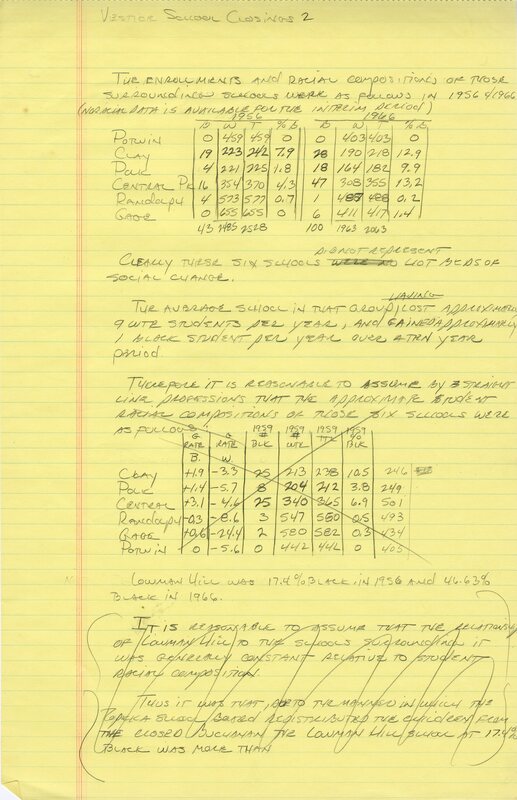 VESTIGE SCHOOL CLOSINGS 2
THE ENROLLMENTS AND RACIAL COMPOSITIONS OF THOSE
SURROUNDING SCHOOLS WERE AS FOLLOWS IN 1956 & 1966
(NO RACIAL DATA IS AVAILABLE FOR THE INTERIM PERIOD)
1956 1966
B W T % B B W T % B
POTWIN 0 459 459 0 0 403 403 0
CLAY 19 223 242 7.9 28 190 218 12.9
POLK 4 221 225 1.8 18 164 182 9.9
CENTRAL PK 16 354 370 4.3 47 308 355 13.2
RANDOLPH 4 573 577 0.7 1 487 488 0.2
GAGE 0 655 655 0 6 411 417 1.4
43 2485 2528 100 1963 2063
CLEALY THESE SIX SCHOOLS DID NOT REPRESENT HOT BEDS OF
SOCIAL CHANGE.
THE AVERAGE SCHOOL IN THAT GROUP, HAVING LOST APPROXIMATELY
9 WTE STUDENTS PER YEAR, AND GAINED APPROXIMATELY
1 BLACK STUDENT PER YEAR OVER A TEN YEAR
PERIOD.
THEREFORE IT IS REASONABLE TO ASSUME BY STRAIGHT
LINE THAT THE APPROXIMATE STUDENT
RACIAL COMPOSITIONS OF THOSE SIX SCHOOLS WERE
AS FOLLOWS:
RATE RATE 1959 # 1959 # 1959 1959 %
B. W BLK WTE TTL BLK
CLAY +1.9 -3.3 25 213 238 10.5 246
POLK +1.4 -5.7 8 204 212 3.8 249
CENTRAL +3.1 -4.6 25 340 365 6.9 501
RANDOLPH -0.3 -8.6 3 547 550 0.5 493
GAGE +0.6 -24.4 2 580 582 0.3 434
POTWIN 0 -5.6 0 442 442 0 405
LOWMAN HILL WAS 17.4% BLACK IN 1956 AND 46.63%
BLACK IN 1966.
IT IS REASONABLE TO ASSUME THAT THE RELATIONSHIP
OF LOWMAN HILL TO THE SCHOOLS SURROUNDING IT
WAS GENERALLY CONSTANT RELATIVE TO STUDENT
RACIAL COMPOSITION.
THUS IT WAS THAT, DUE TO THE MANNER IN WHICH THE
TOPEKA SCHOOL BOARD REDISTRIBUTED THE CHILDREN FROM
THE CLOSED BUCHANAN THE LOWMAN HILL SCHOOL AT 17.4%
BLACK WAS MORE THAN